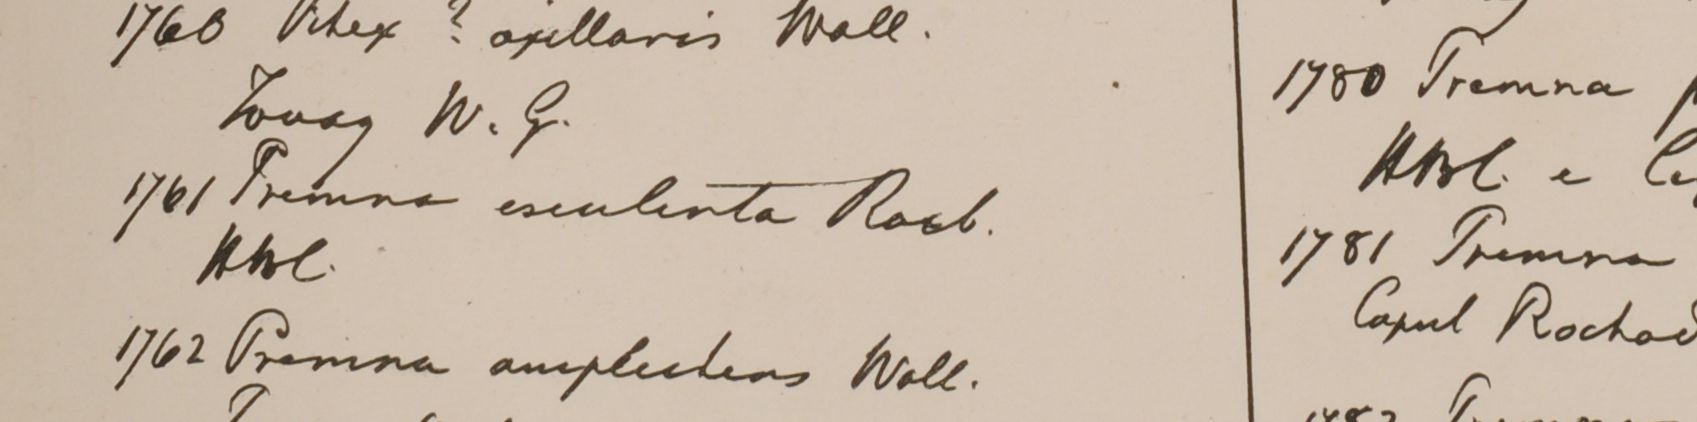 1760 Vitex ? axillaris Wall.
Tavoy W. G.
1761 Premna esculenta Roxb.
HBC.
1762 Premna amplectens Wall.
1780 Premna
HBC. e
1781 Premna
Caput
1782 Premna